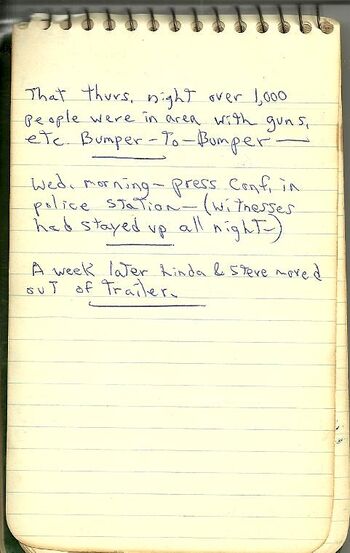 That thurs. night over 1,000
people were in area with guns,
etc. Bumper-To-Bumper —
Wed. morning - press conf, in
police station - (witnesses
had stayed up all night-)
A week later Linda & Steve moved
out of trailer.